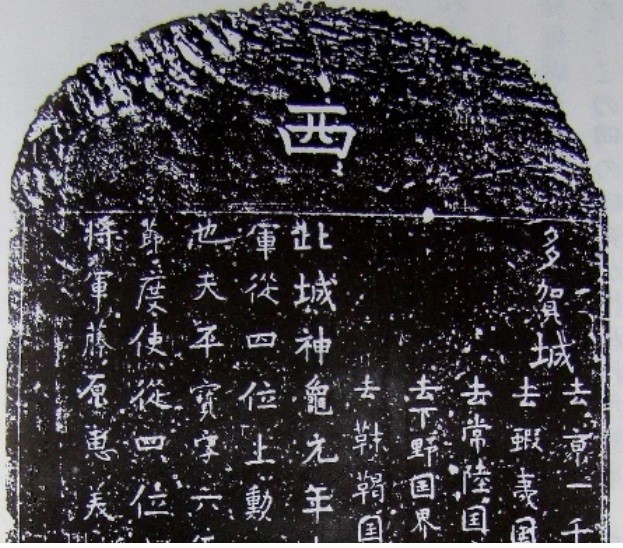 西
多賀城
去京一千
去蝦夷国
去常陸国
去下野国界
去靺鞨国
此城神龜元年
軍從四位上勳
也天平寶字六年
節度使從四位
將軍藤原惠美